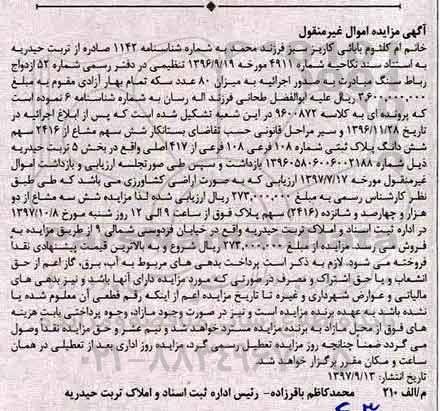 آگهی مزایده اموال غیرمنقول
خانم ام کلثوم بابائی کاریز سبز فرزند محمد به شماره شناسنامه ۱۱۴۲ صادره از تربت حیدریه
به استناد سند نکاحیه شماره ۴۹۱۱ مورخه ۱۳۹۶/۹/۱۹ تنظیمی در دفتر رسمی شماره ۵۲ ازدواج
رباط سنگ مبادرت به صدور اجرائیه به میزان ۸۰ عدد سکه تمام بهار آزادی مقوم به مبلغ
۳٫۶۰۰٫۰۰۰٫۰۰۰ ریال علیه ابوالفضل طحانی فرزند اله رسان به شماره شناسنامه ۶ نموده است
که پرونده ای به کلاسه ۹۶۰۰۸۷۲ در این شعبه تشکیل شده است که پس از ابلاغ اجرائیه در
تاریخ ۱۳۹۶/۱۱/۲۸ و سیر مراحل قانونی حسب تقاضای بستانکار شش سهم مشاع از ۲۴۱۶ سهم
شش دانگ پلاک ثبتی شماره ۱۰۸ فرعی ۱۰۸ فرعی از ۴۱۷ اصلی واقع در بخش ۵ تربت حیدریه
ذیل شماره ۱۳۹۶۰۵۸۰۶۰۰۶۰۰۲۱۸۸ بازداشت و سپس طی صورتجلسه ارزیابی و بازداشت اموال
غیرمنقول مورخه ۱۳۹۷/۷/۱۷ ارزیابی که به صورت اراضی کشاورزی می باشد که طی طبق
نظر کارشناس رسمی به مبلغ ۲۷۳٫۰۰۰٫۰۰۰ ریال ارزیابی شده لذا مزایده شش سه مشاع از دو
هزار و چهارصد و شانزده (۲۴۱۶) سهم پلاک فوق از ساعت ۹ الی ۱۲ روز شنبه مورخ ۱۳۹۷/۱۰/۸
در اداره ثبت اسناد و املاک تربت حیدریه واقع در خیابان فردوسی شمالی ۹ از طریق مزایده به
فروش می رسد. مزایده از مبلغ ۲۷۳٫۰۰۰٫۰۰۰ ریال شروع و به بالاترین قیمت پیشنهادی نقداً
فروخته می شود. لازم به ذکر است پرداخت بدهی های مربوط به آب، برق، گاز اعم از حق
انشعاب و یا حق اشتراک و مصرف در صورتی که مورد مزایده دارای آنها باشد و نیز بدهی های
مالیاتی و عوارض شهرداری و غیره تا تاریخ مزایده اعم از اینکه رقم قطعی آن معلوم شده یا
نشده باشد به عهده برنده مزایده است و نیز در صورت وجود مازاد، وجوه پرداختی بابت هزینه
های فوق از محل مازاد به برنده مزایده مسترد خواهد شد و نیم عشر و حق مزایده نقداً وصول
می گردد ضمناً چنانچه روز مزایده تعطیل رسمی گردد، مزایده روز اداری بعد از تعطیلی در همان
ساعت و مکان مقرر برگزار خواهد شد.
تاریخ انتشار: ۱۳۹۷/۹/۱۳
م/الف ۲۱۰ محمدکاظم باقرزاده- رئیس اداره ثبت اسناد و املاک تربت حیدریه